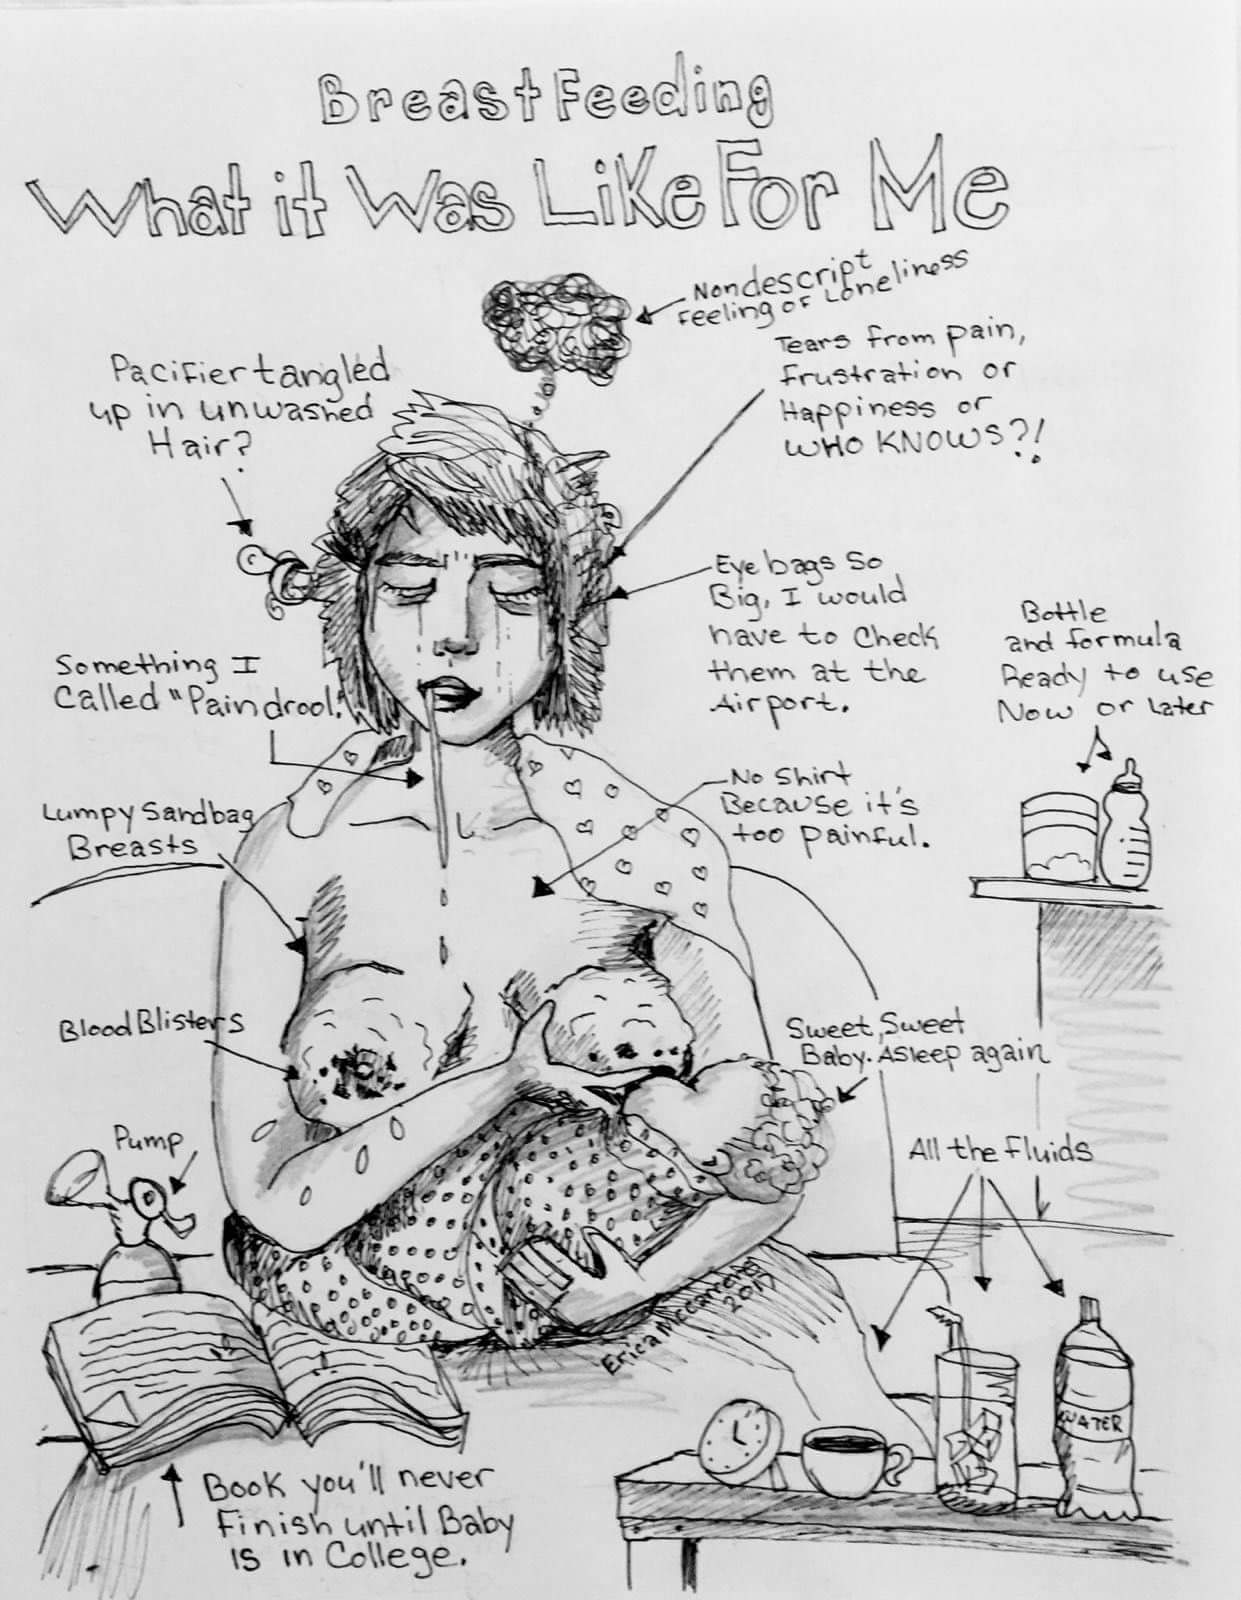 BreastFeeding
What it Was Like For Me
Nondescript
Feeling of Loneliness
Tears from pain,
frustration or
Happiness or
WHO KNOWS?!
Pacifier tangled
up in unwashed
Hair?
Eye bags so
Big, I would
have to check
them at the
Airport.
Bottle
and formula
Ready to use
Now or Later
Something I
Called "Paindrool."
No Shirt
Because it's
too painful.
Lumpy Sandbag
Breasts
Blood Blisters
Sweet, Sweet
Baby. Asleep again
Pump
All the Fluids
Erica
2017
WATER
Book you'll never
Finish until Baby
is in College.